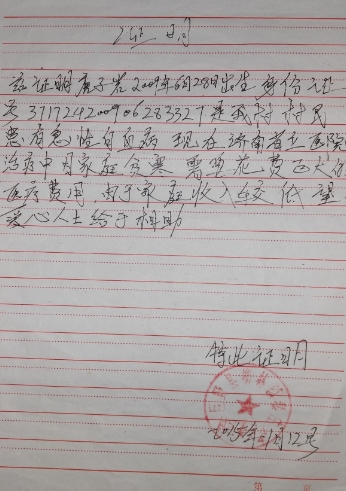 证明
兹证明庞子岩2009年6月28日出生身份证
号371724200906283327是我村村民
患有急性白血病现在济南省立医院
治病中因家庭贫寒需要花费巨大的
医疗费用.由于家庭收入较低望
爱心人士给于相助
特此证明
2015年月12号
第 页